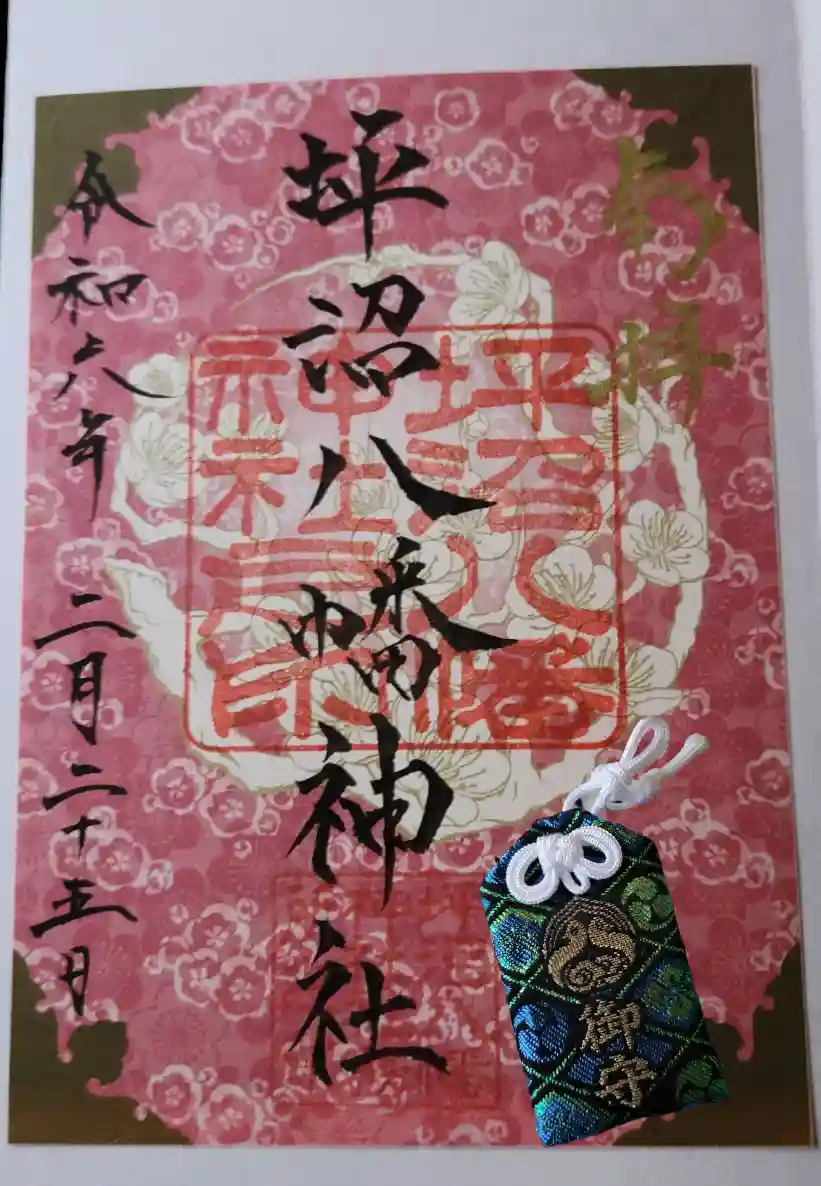 奉拝
坪沼八幡神社
令和六年 二月二十五日
坪沼八幡
神社
御守